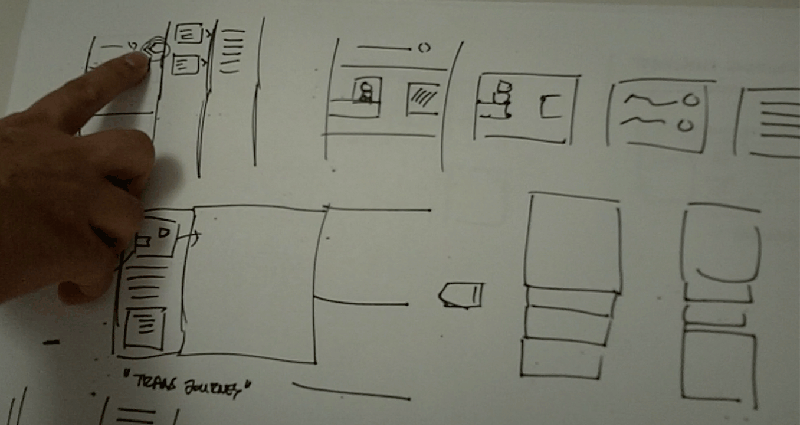 "TRANS JOURNEY"